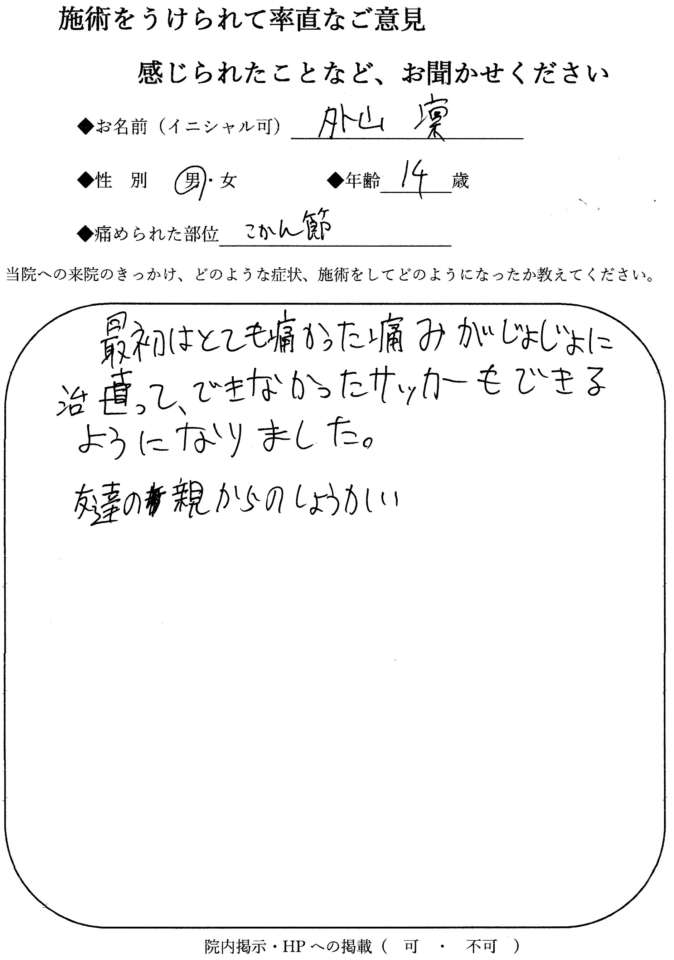 施術をうけられて率直なご意見
感じられたことなど、お聞かせください
◆お名前（イニシャル可） 外山 凜
◆性 別 男・女 ◆年齢 14 歳
◆痛められた部位 こかん節
当院への来院のきっかけ、どのような症状、施術をしてどのようになったか教えてください。
最初はとても痛かった痛みがじょじょに
治って、できなかったサッカーもできる
ようになりました。
友達の親からのしょうかい
院内掲示・HPへの掲載（ 可 ・ 不可 ）